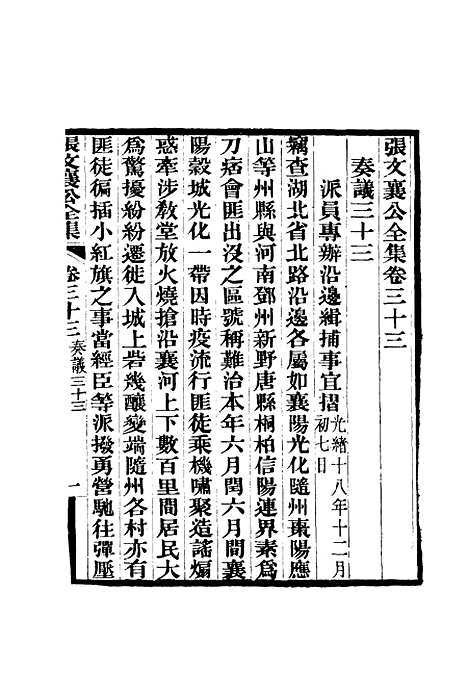 張文襄公全集卷三十三
奏議三十三
派員專辦沿邊緝捕事宜摺光緒十八年十二月初七日
竊查湖北省北路沿邊各屬如襄陽光化隨州棗陽應
山等州縣與河南鄧州新野唐縣桐柏信陽連界素爲
刀痞會匪出沒之區號稱難治本年六月閏六月間襄
陽穀城光化一帶因時疫流行匪徒乘機嘯聚造謠煽
惑牽涉敎堂放火燒搶沿襄河上下數百里間居民大
爲驚擾紛紛遷徙入城上砦幾釀變端隨州各村亦有
匪徒徧插小紅旗之事當經臣等派撥勇營馳往彈壓
張文襄公全集
卷三十三
奏議三十三
一